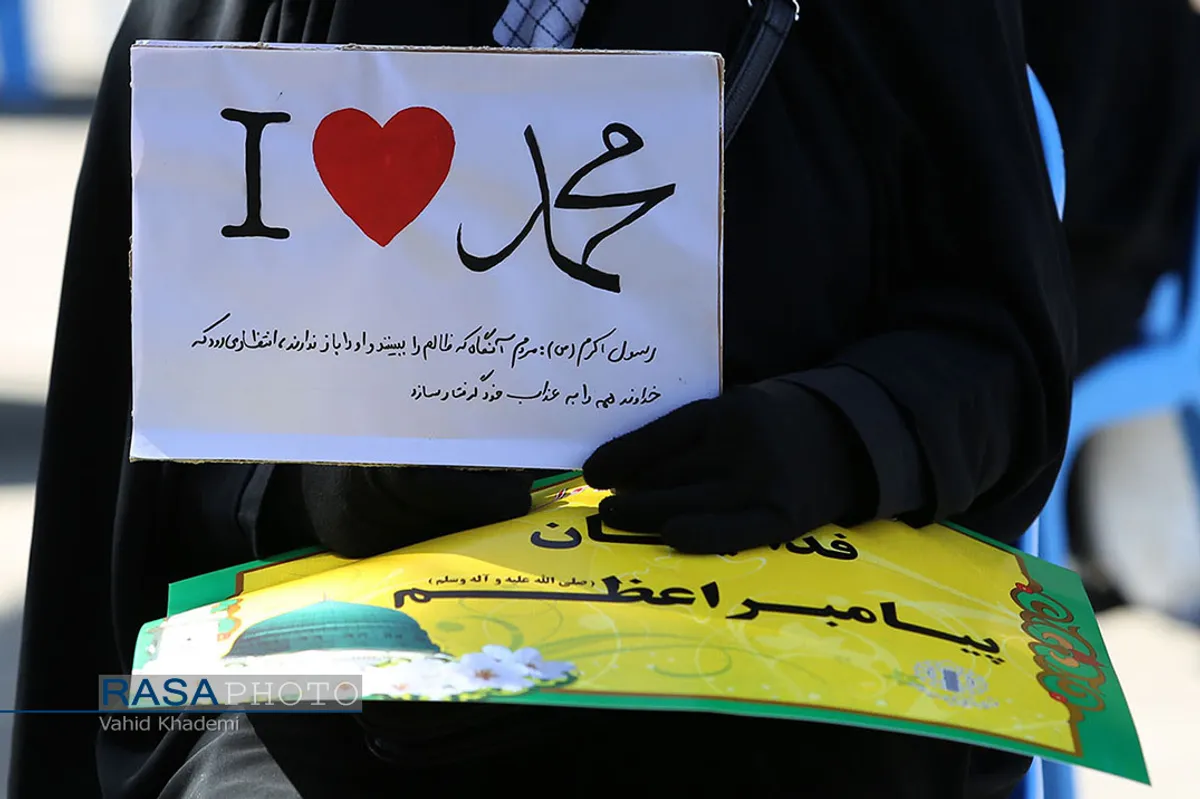 I ❤ محمد
رسول اکرم (ص): مردم آنگاه که ظالم را ببینند و او را باز ندارند، انتظار می رود که
خداوند همه را به عذاب خود گرفتار سازد
پیامبر اعظم (صلی الله علیه و آله وسلم)
RASAPHOTO
Vahid Khademi